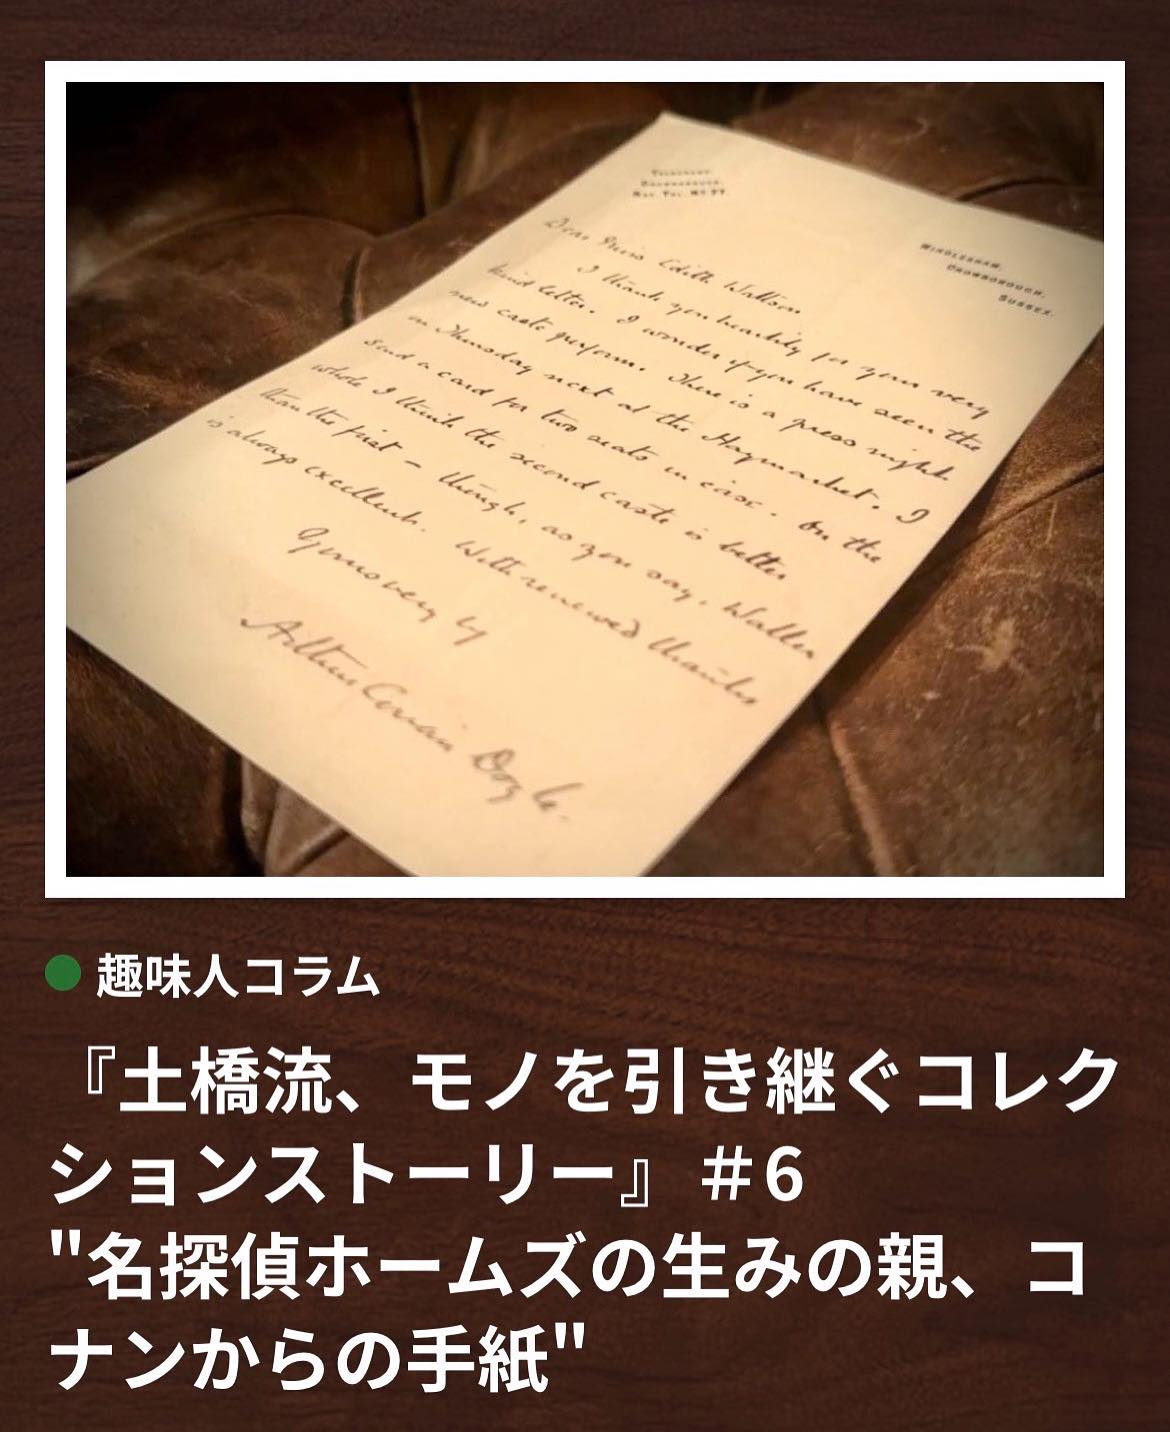 TELEGRAMS,
CROWBOROUGH.
NAT. TEL. Nº 77
WINDLESHAM,
CROWBOROUGH,
SUSSEX.
Dear Miss Edith
I thank you heartily for your very
kind letter. I wonder if you have seen the
new caste perform. There is a press night
on Thursday next at the Haymarket. I
send a card for two seats in case. On the
whole I think the second caste is better
than the first – though, as you say, Waller
is always excellent. With renewed thanks
Yours very
Arthur Conan Doyle.
趣味人コラム
『土橋流、モノを引き継ぐコレク
ションストーリー』＃6
"名探偵ホームズの生みの親、コ
ナンからの手紙"